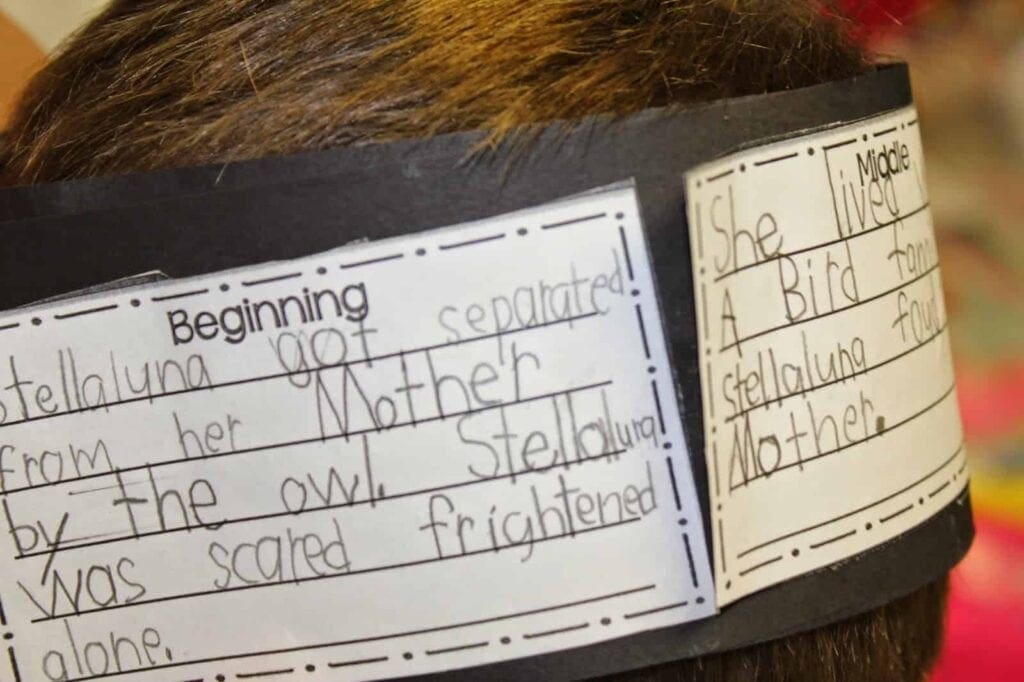 Beginning
Stellaluna got separated
from her Mother
by the owl. Stellaluna
was scared frightened
alone.
Middle
She lived
A Bird fam
stellaluna foud
Mother.